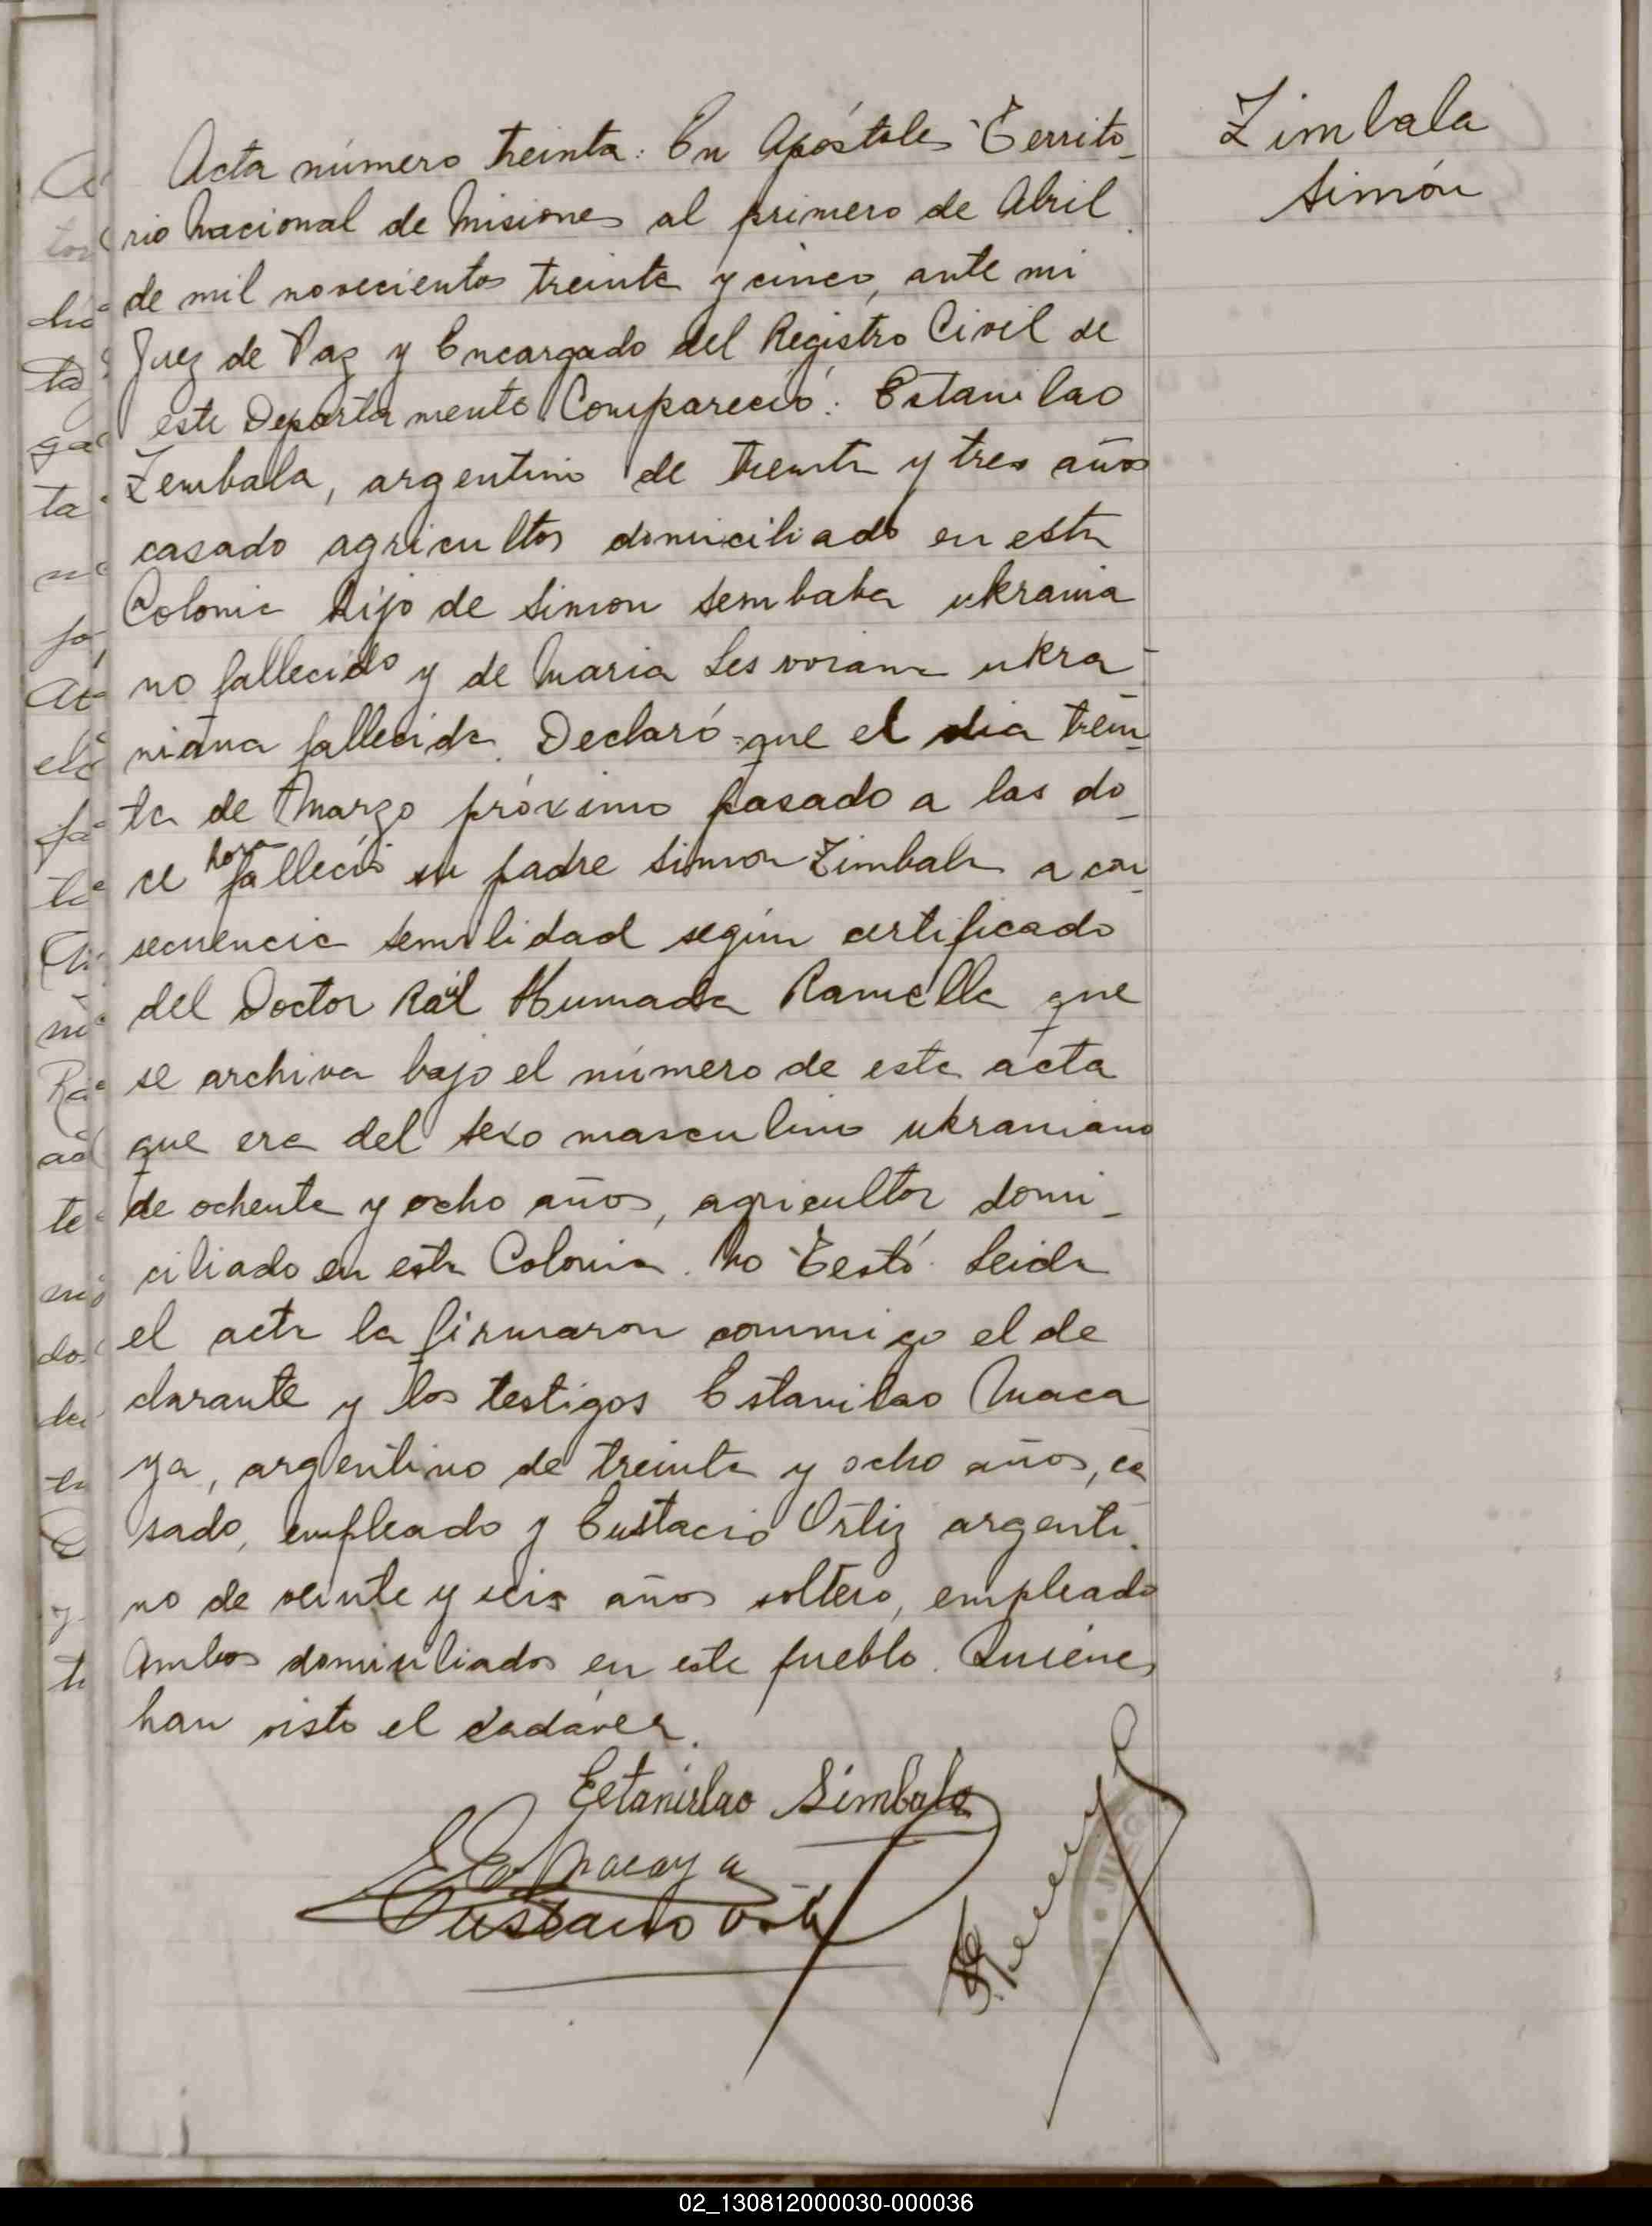 Zimbala
Simón
Acta número treinta: En Apóstoles Territo-
rio Nacional de Misiones al primero de Abril
de mil novecientos treinta y cinco, ante mi
Juez de Paz y Encargado del Registro Civil de
este Departamento Compareció: Estanilao
Zembala, argentino de treinta y tres años
casado agricultor domiciliado en esta
Colonia hijo de Simon Sembaba ukrania
no fallecido y de Maria ukra-
niana fallecida. Declaró que el dia trein-
ta de Marzo próximo pasado a las do-
ce hora falleció su padre Simon Zimbala a con-
secuencia semilidad según certificado
del Doctor Raúl Humada Ramella que
se archiva bajo el número de esta acta
que era del sexo masculino ukraniano
de ochenta y ocho años, agricultor domi-
ciliado en esta Colonia. No Testó. Leida
el acta la firmaron conmigo el de
clarante y los testigos Estanilao Maca
ya, argentino de treinta y ocho años, ca
sado, empleado y Eustacio Ortiz argenti-
no de veinte y seis años soltero, empleado
Ambos domiciliados en este pueblo. Quiénes
han visto el cadáver.
Estanislao Simbala
Macaya
Eustacio Ortiz
JUZG
02_130812000030-000036